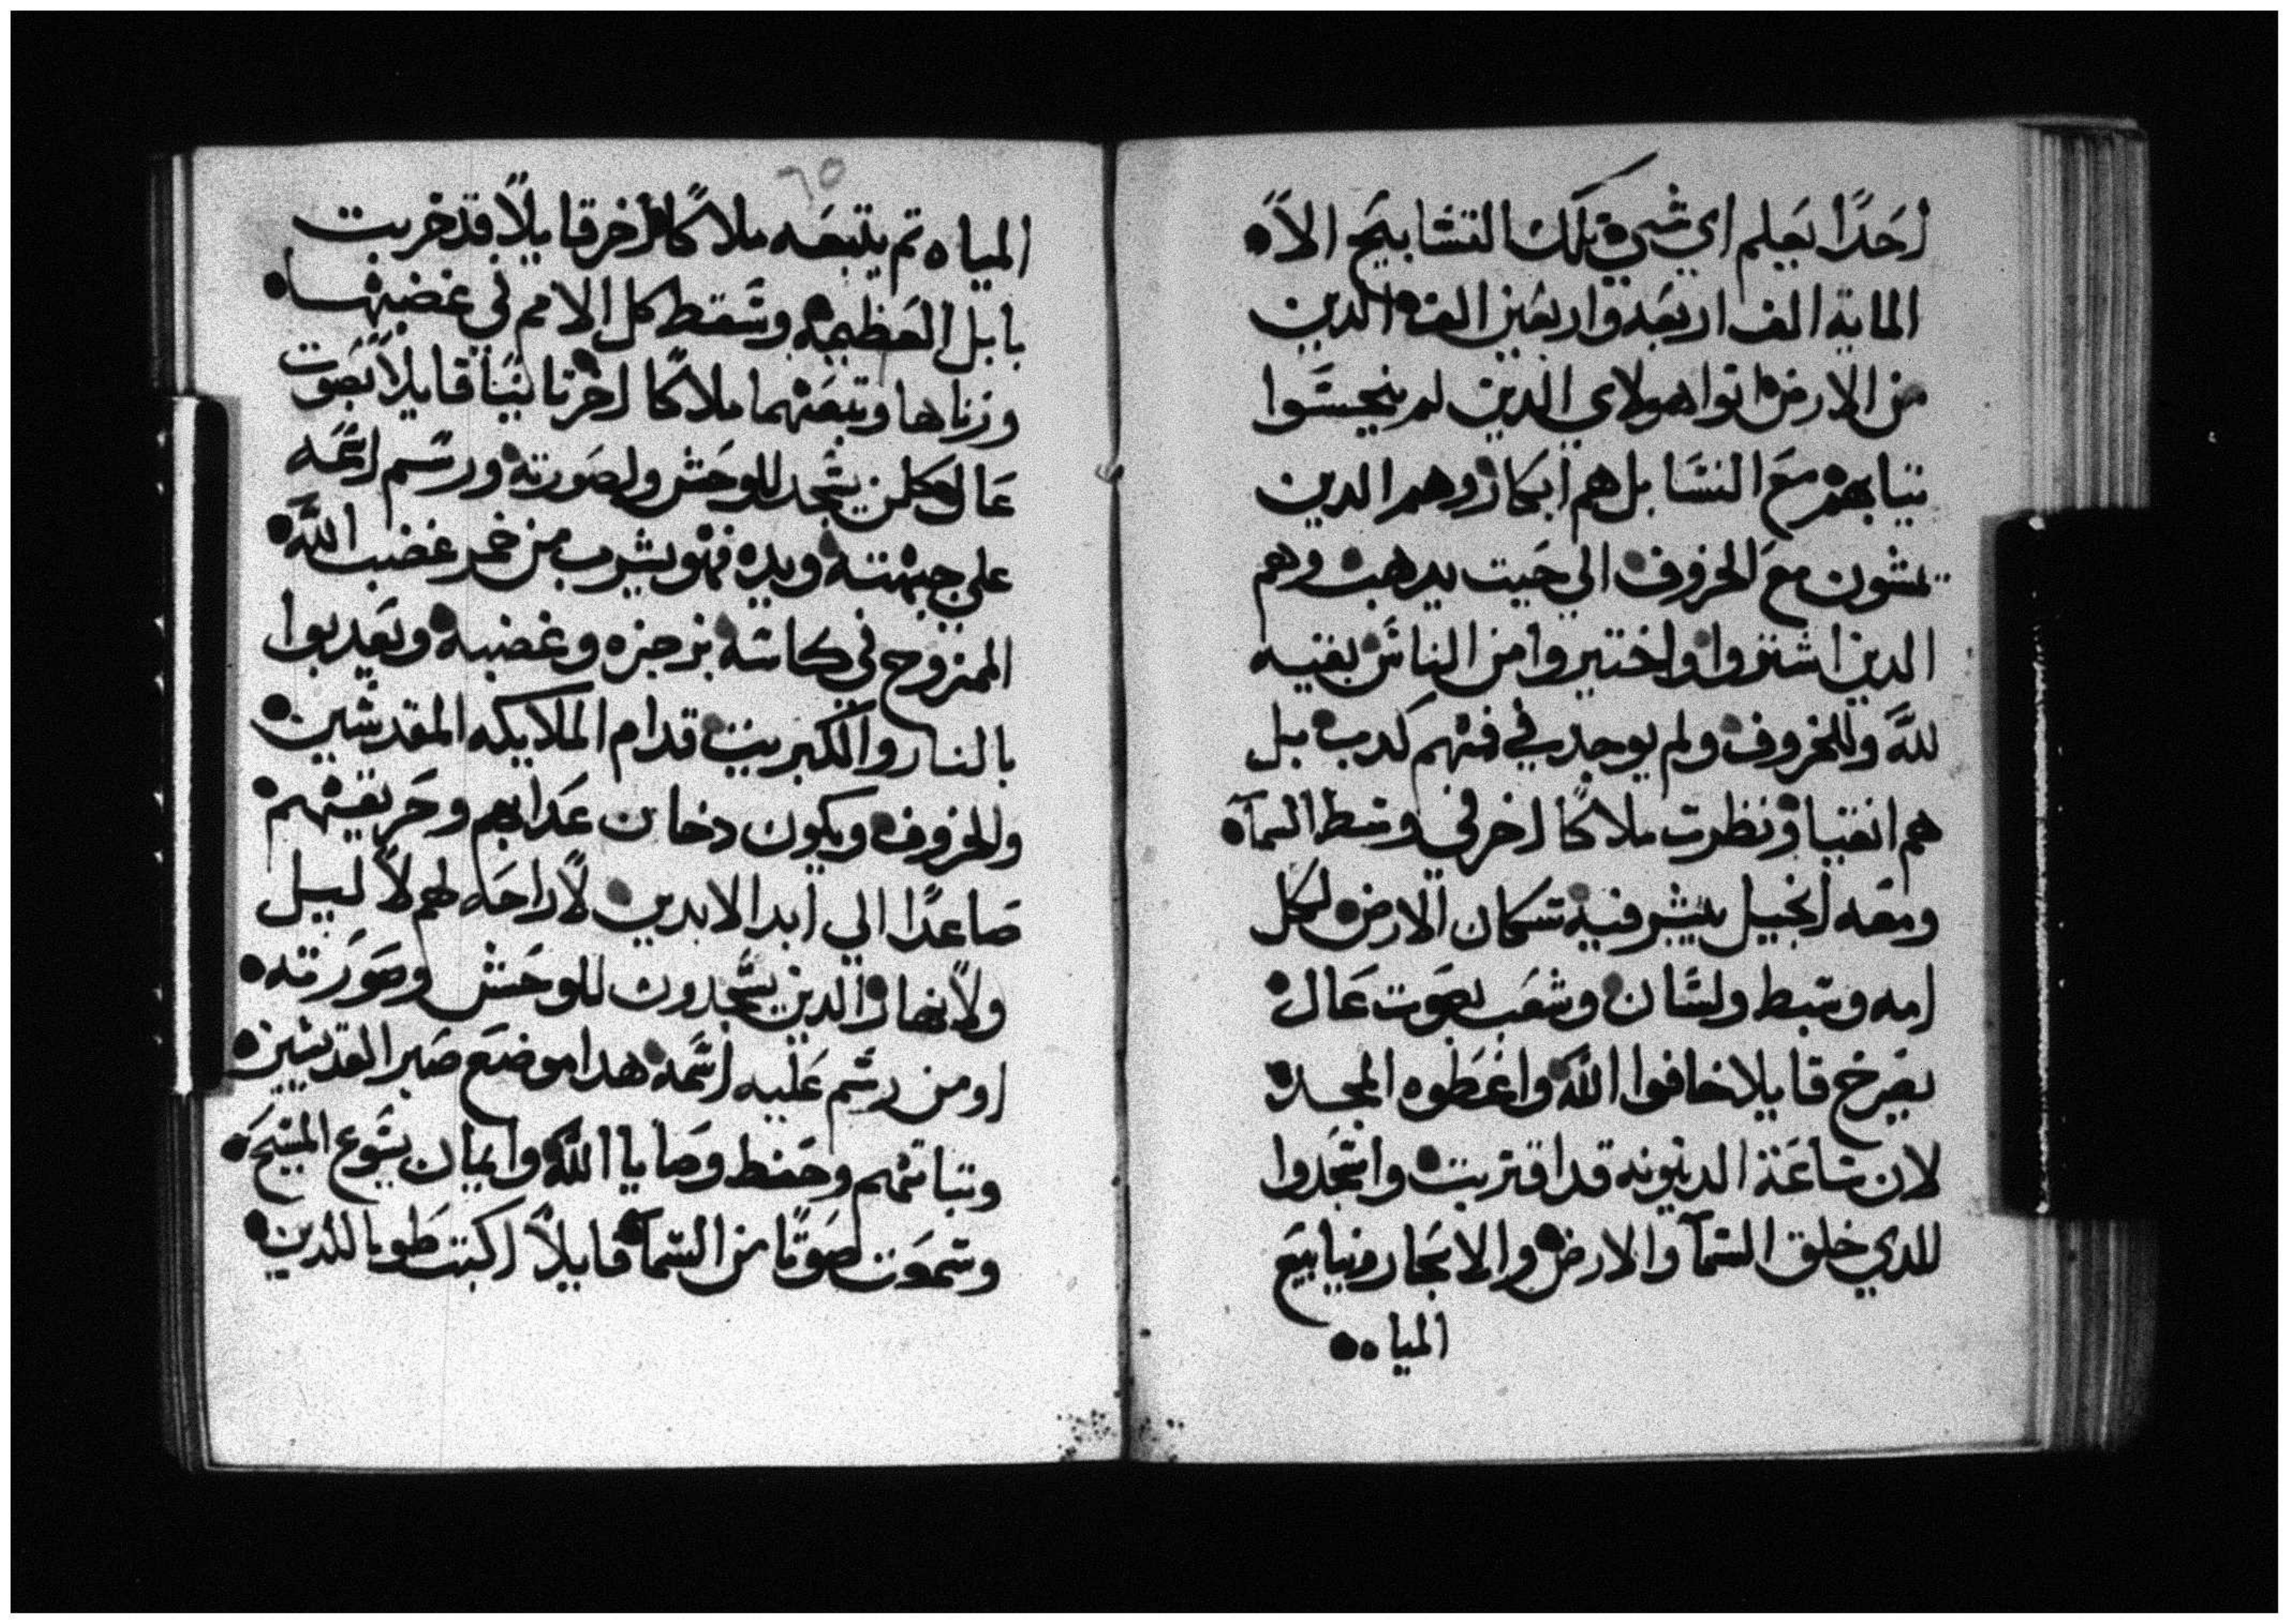 احدًا يعلم اي شي تلك التسابيح الا
الماية الف اربعه واربعين الف الدين
من الارض اتوا هولاي الدين لم ينجسوا
تيابهم مع النسا بل هم ابكار وهم الدين
يمشون مع الخروف الي حيت يدهب وهم
الدين اشتروا واختيروا من الناس بقيه
لله وللخروف ولم يوجد في فمهم كدب بل
هم انقيا ونظرت ملاكًا اخر في وسط السمآ
ومعه انجيل يبشر فيه سكان الارض لكل
امه وسبط ولسان وشعب بصوت عال
يصرخ قايلا خافوا الله واعطوه المجد
لان ساعة الدينونه قد اقتربت واسجدوا
للدي خلق السمآ والارض والابحار وينابيع
المياه
٦٥
المياه تم يتبعه ملاكًا اخر قايلًا قد خربت
بابل العظيمه وسقط كل الامم في غضبها
وزناها وتبعهما ملاكًا اخر تالتًا قايلًا بصوت
عال كلمن يسجد للوحش ولصورته ورسم اسمه
علي جبهته ويده فهو يشرب من خمر غضب الله
الممزوج في كاسه بزجزه وغضبه ويعدبوا
بالنار والكبريت قدام الملايكه المقدسين
والخروف ويكون دخان عدابهم وحريقهم
صاعدًا الي ابد الابدين لا راحه لهم لا ليل
ولا نهار الدين يسجدون للوحش وصورته
او من رسم عليه اسمه هدا موضع صبر القديسين
وتباتهم وحفظ وصايا الله وايمان يسوع المسيح
وسمعت صوتًا من السمآ قايلًا اكتب طوبا للدين